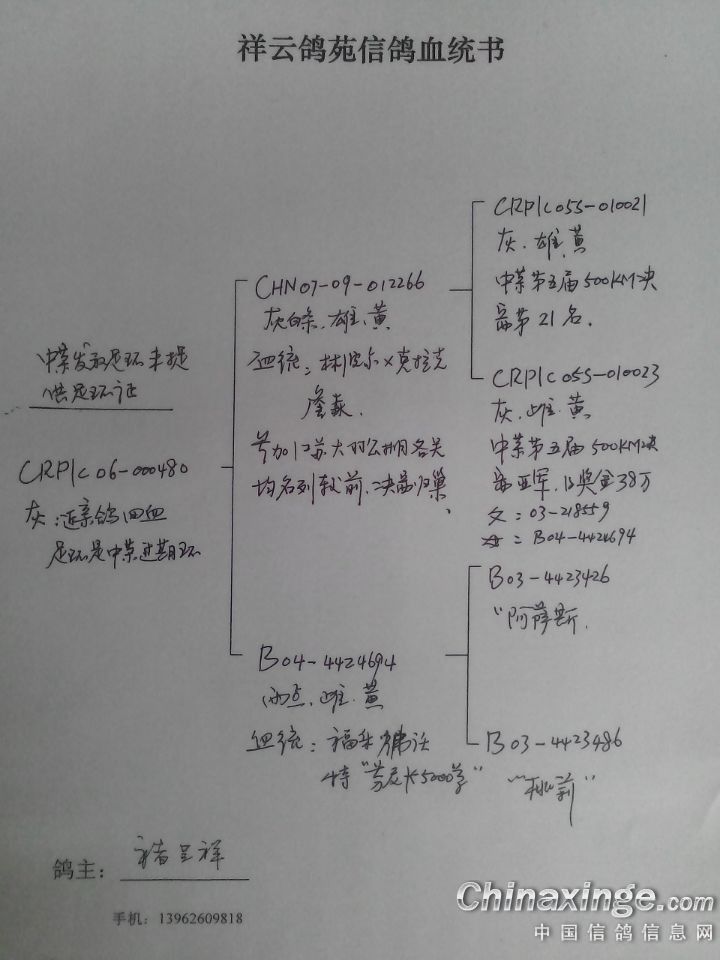 祥云鸽苑信鸽血统书
CRPIC055-010021
灰.雄.黄
中荣第五届500KM决
赛第21名.
CHN07-09-012266
灰白条.雄.黄
血统:林波尔×克拉克
参加江苏大羽公棚各关
均名列较前.决赛归巢.
CRPIC055-010023
灰.雌.黄
中荣第五届500KM决
赛亚军.   奖金38万
父:03-218559
母:B04-4424694
中荣发放足环未提
供足环证
CRPIC06-000480
灰:近亲鸽回血
足环是中荣过期环
B04-4424694
雨点.雌.黄
血统:福来
特"芬尼长5000学"
B03-4423426
"阿萨斯.
B03-4423486
鸽主: 褚呈祥
手机:13962609818
Chinaxinge.com
中国信鸽信息网